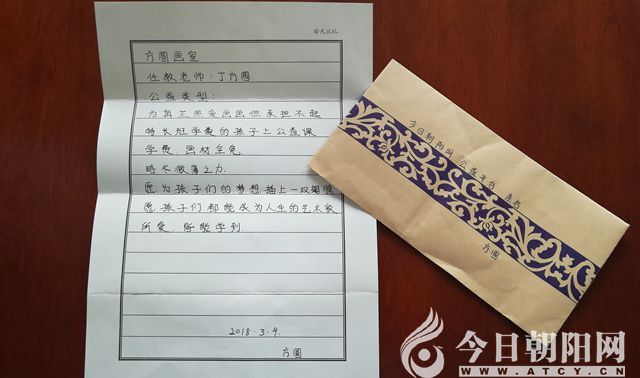 拾光记忆
方圆画室
任教老师:丁方圆
公益类型:
为真正热爱画画但承担不起
特长班学费的孩子上公益课
学费、画材全免
略尽微薄之力.
愿为孩子们的梦想插上一双翅膀
愿.孩子们都能成为人生的艺术家
所爱.皆能学到
2018.3.9.
方圆
今日朝阳网 公益平台 亲启
方圆
今日朝阳网
WWW.ATCY.CN